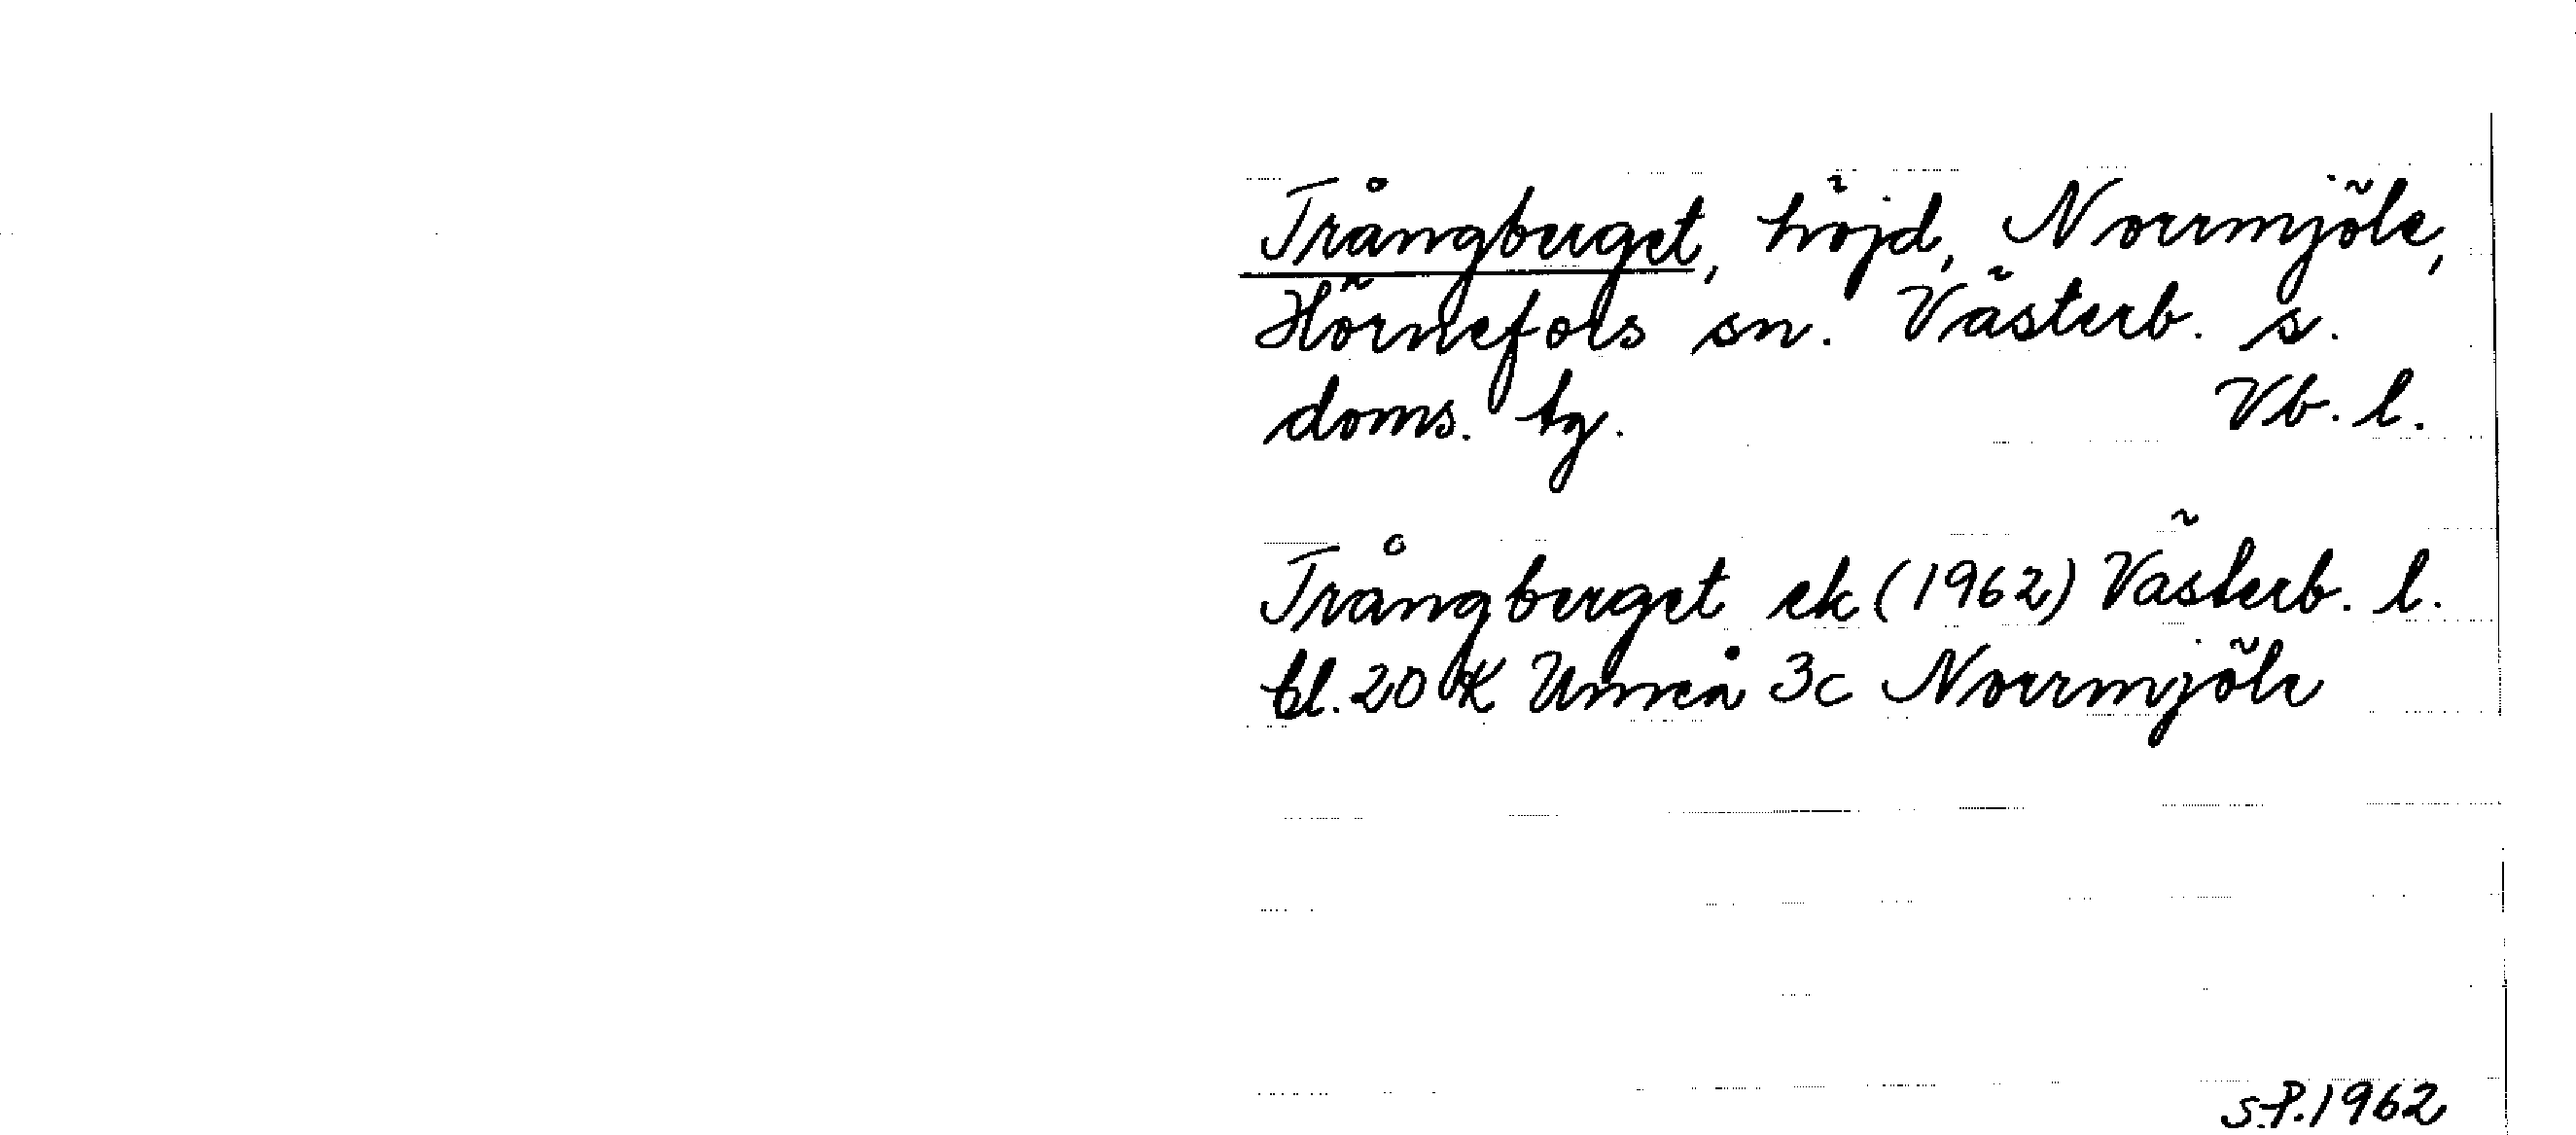 Trångberget, höjd, Norrmjöle,
Hörnefors sn. Västerb. s.
doms. tg. Vb. l.
Trångberget ek (1962) Västerb. l.
bl. 20 K Umeå 3c Norrmjöle
S.P. 1962